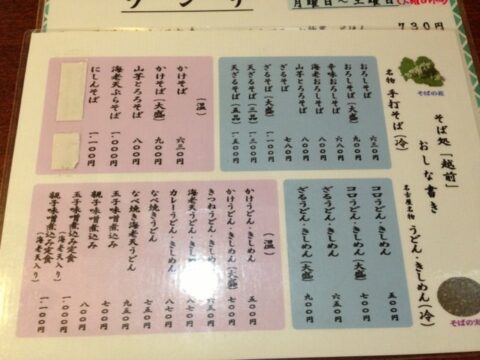 730円
そば処「越前」
おしな書き
そばの花
そばの実
名物 手打そば(冷)
おろしそば 六三〇円
おろしそば(大盛) 九〇〇円
辛味おろしそば
山芋とろろそば 八〇〇円
ざるそば
ざるそば(大盛)
天ざるそば(三品)
天ざるそば(五品)
(温)
かけそば 六三〇円
かけそば(大盛) 九〇〇円
山芋とろろそば 八〇〇円
海老天ぷらそば 一.一〇〇円
にしんそば 一.一〇〇円
名古屋名物 うどん・きしめん(冷)
コロうどん・きしめん 五〇〇円
コロうどん・きしめん(大盛) 七〇〇円
ざるうどん・きしめん 六五〇円
ざるうどん・きしめん(大盛) 九〇〇円
(温)
かけうどん・きしめん 五〇〇円
かけうどん・きしめん(大盛) 七〇〇円
きつねうどん・きしめん 六五〇円
海老天うどん・きしめん 八七〇円
カレーうどん・きしめん
なべ焼きうどん 七五〇円
なべ焼き海老天うどん 九五〇円
玉子味噌煮込み
親子味噌煮込み 八〇〇円
玉子味噌煮込み定食(海老天入り)
親子味噌煮込み定食(海老天入り) 一.一〇〇円